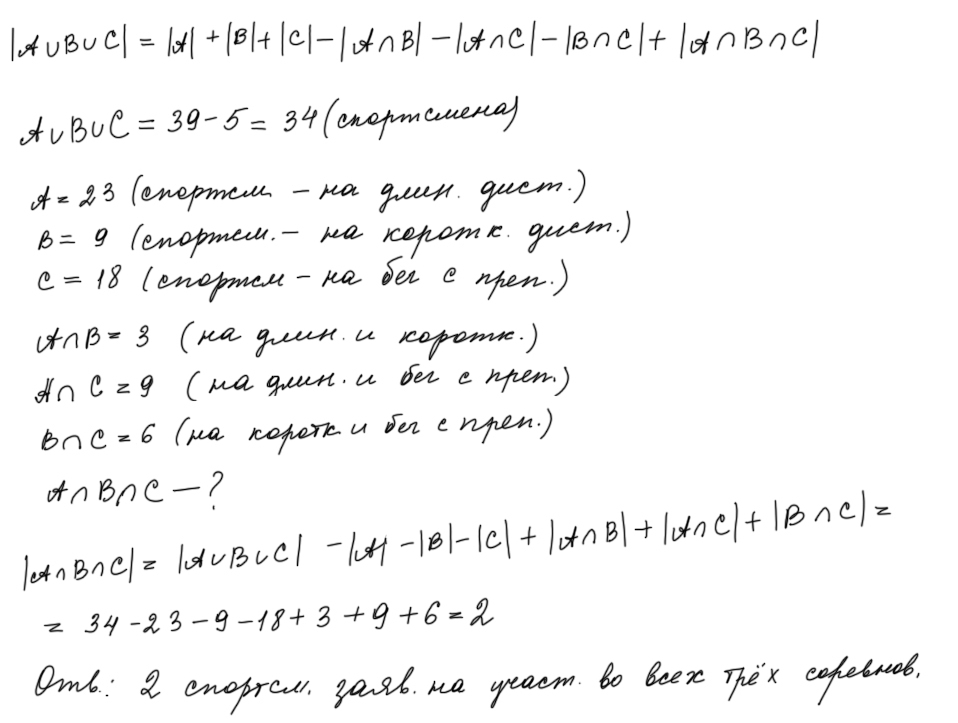 |A∪B∪C| = |A| + |B| + |C| − |A∩B| − |A∩C| − |B∩C| + |A∩B∩C|
A∪B∪C = 39 − 5 = 34 (спортсмена)
A = 23 (спортсм. − на длин. дист.)
B = 9 (спортсм. − на коротк. дист.)
C = 18 (спортсм − на бег с преп.)
A∩B = 3 (на длин. и коротк.)
A∩C = 9 (на длин. и бег с преп.)
B∩C = 6 (на коротк и бег с преп.)
A∩B∩C − ?
|A∩B∩C| = |A∪B∪C| − |A| − |B| − |C| + |A∩B| + |A∩C| + |B∩C| =
= 34 − 23 − 9 − 18 + 3 + 9 + 6 = 2
Отв.: 2 спортсм. заяв. на участ. во всех трёх соревнов.